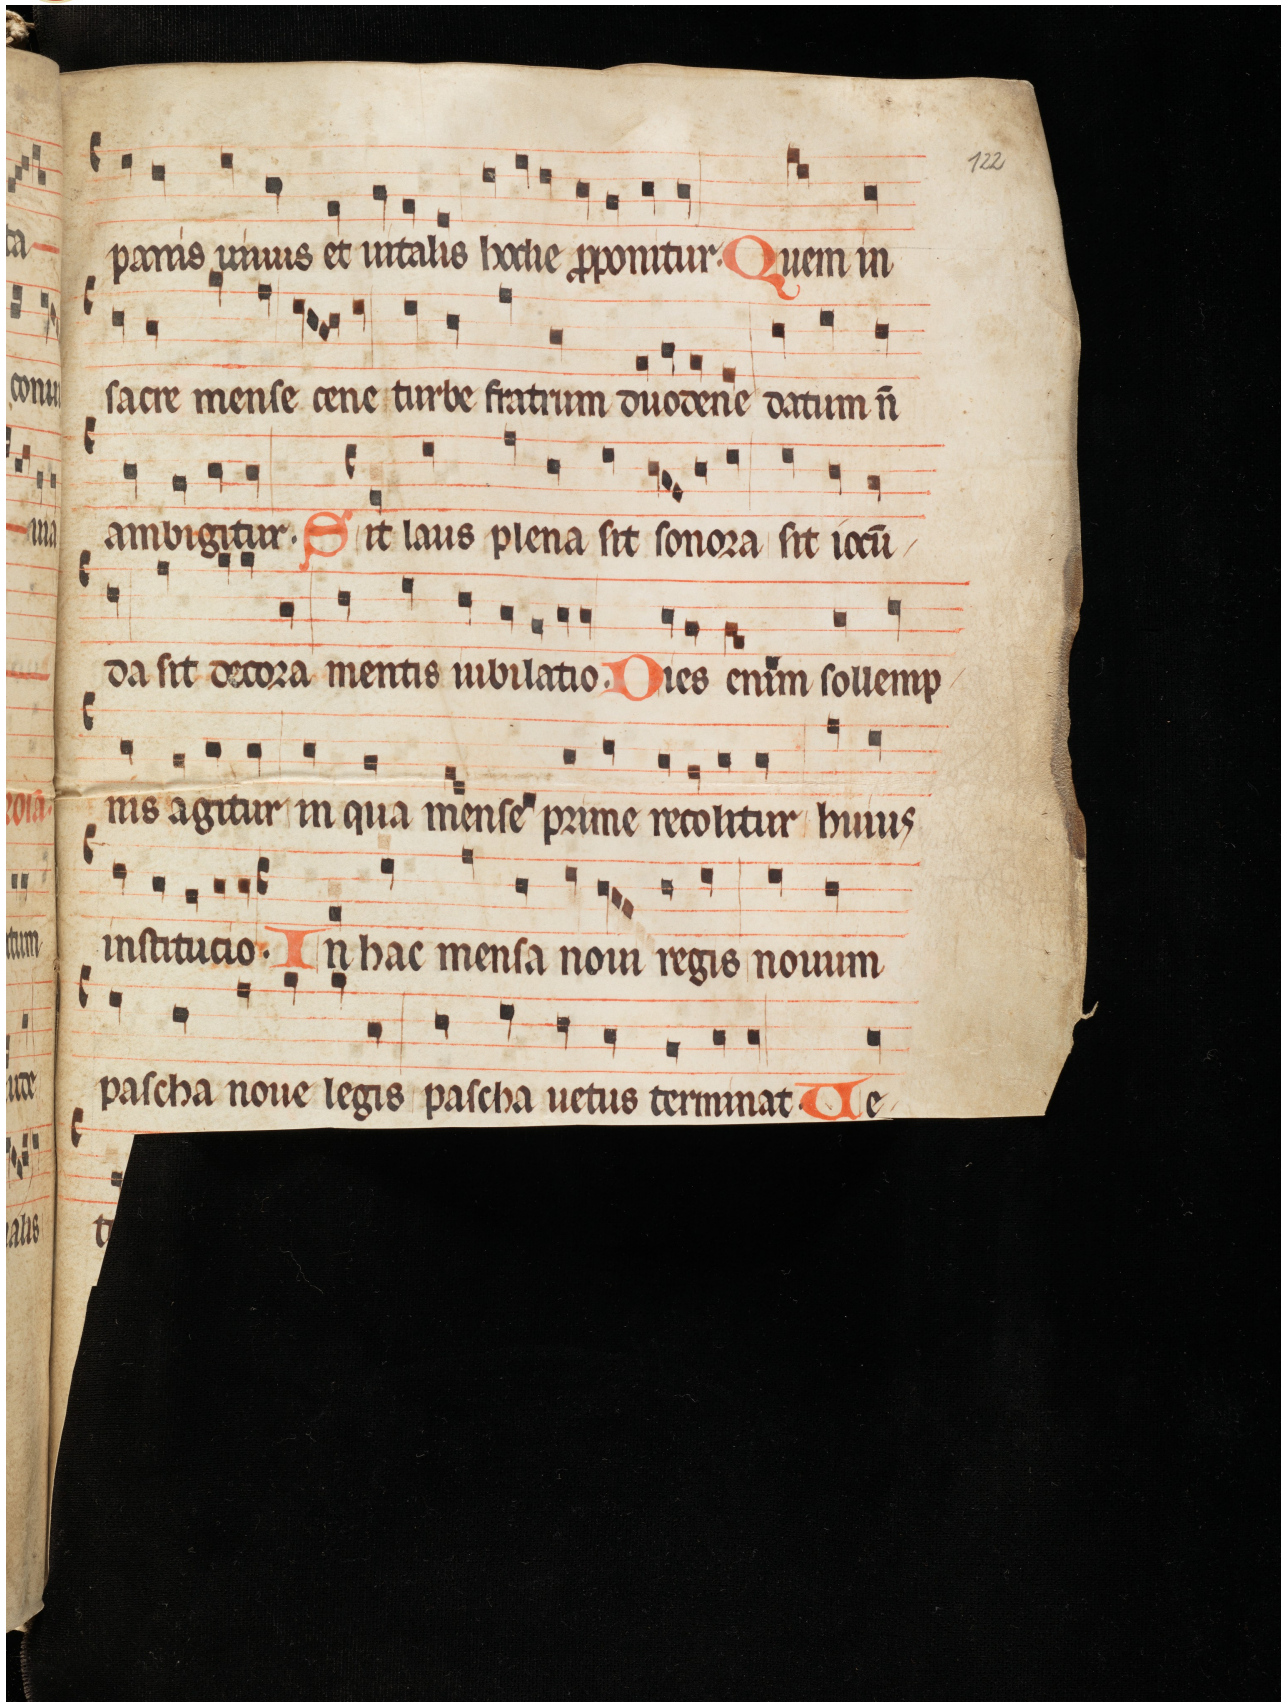 122
panis uiuus et uitalis hodie ꝓponitur. Quem in
sacre mense cene turbe fratrum duodene datum n̄
ambigitur. Sit laus plena sit sonora sit iocū
da sit decora mentis iubilatio. Dies enim sollemp
nis agitur in qua mense prime recolitur huius
institucio. In hac mensa noui regis nouum
pascha noue legis pascha uetus terminat. Ve